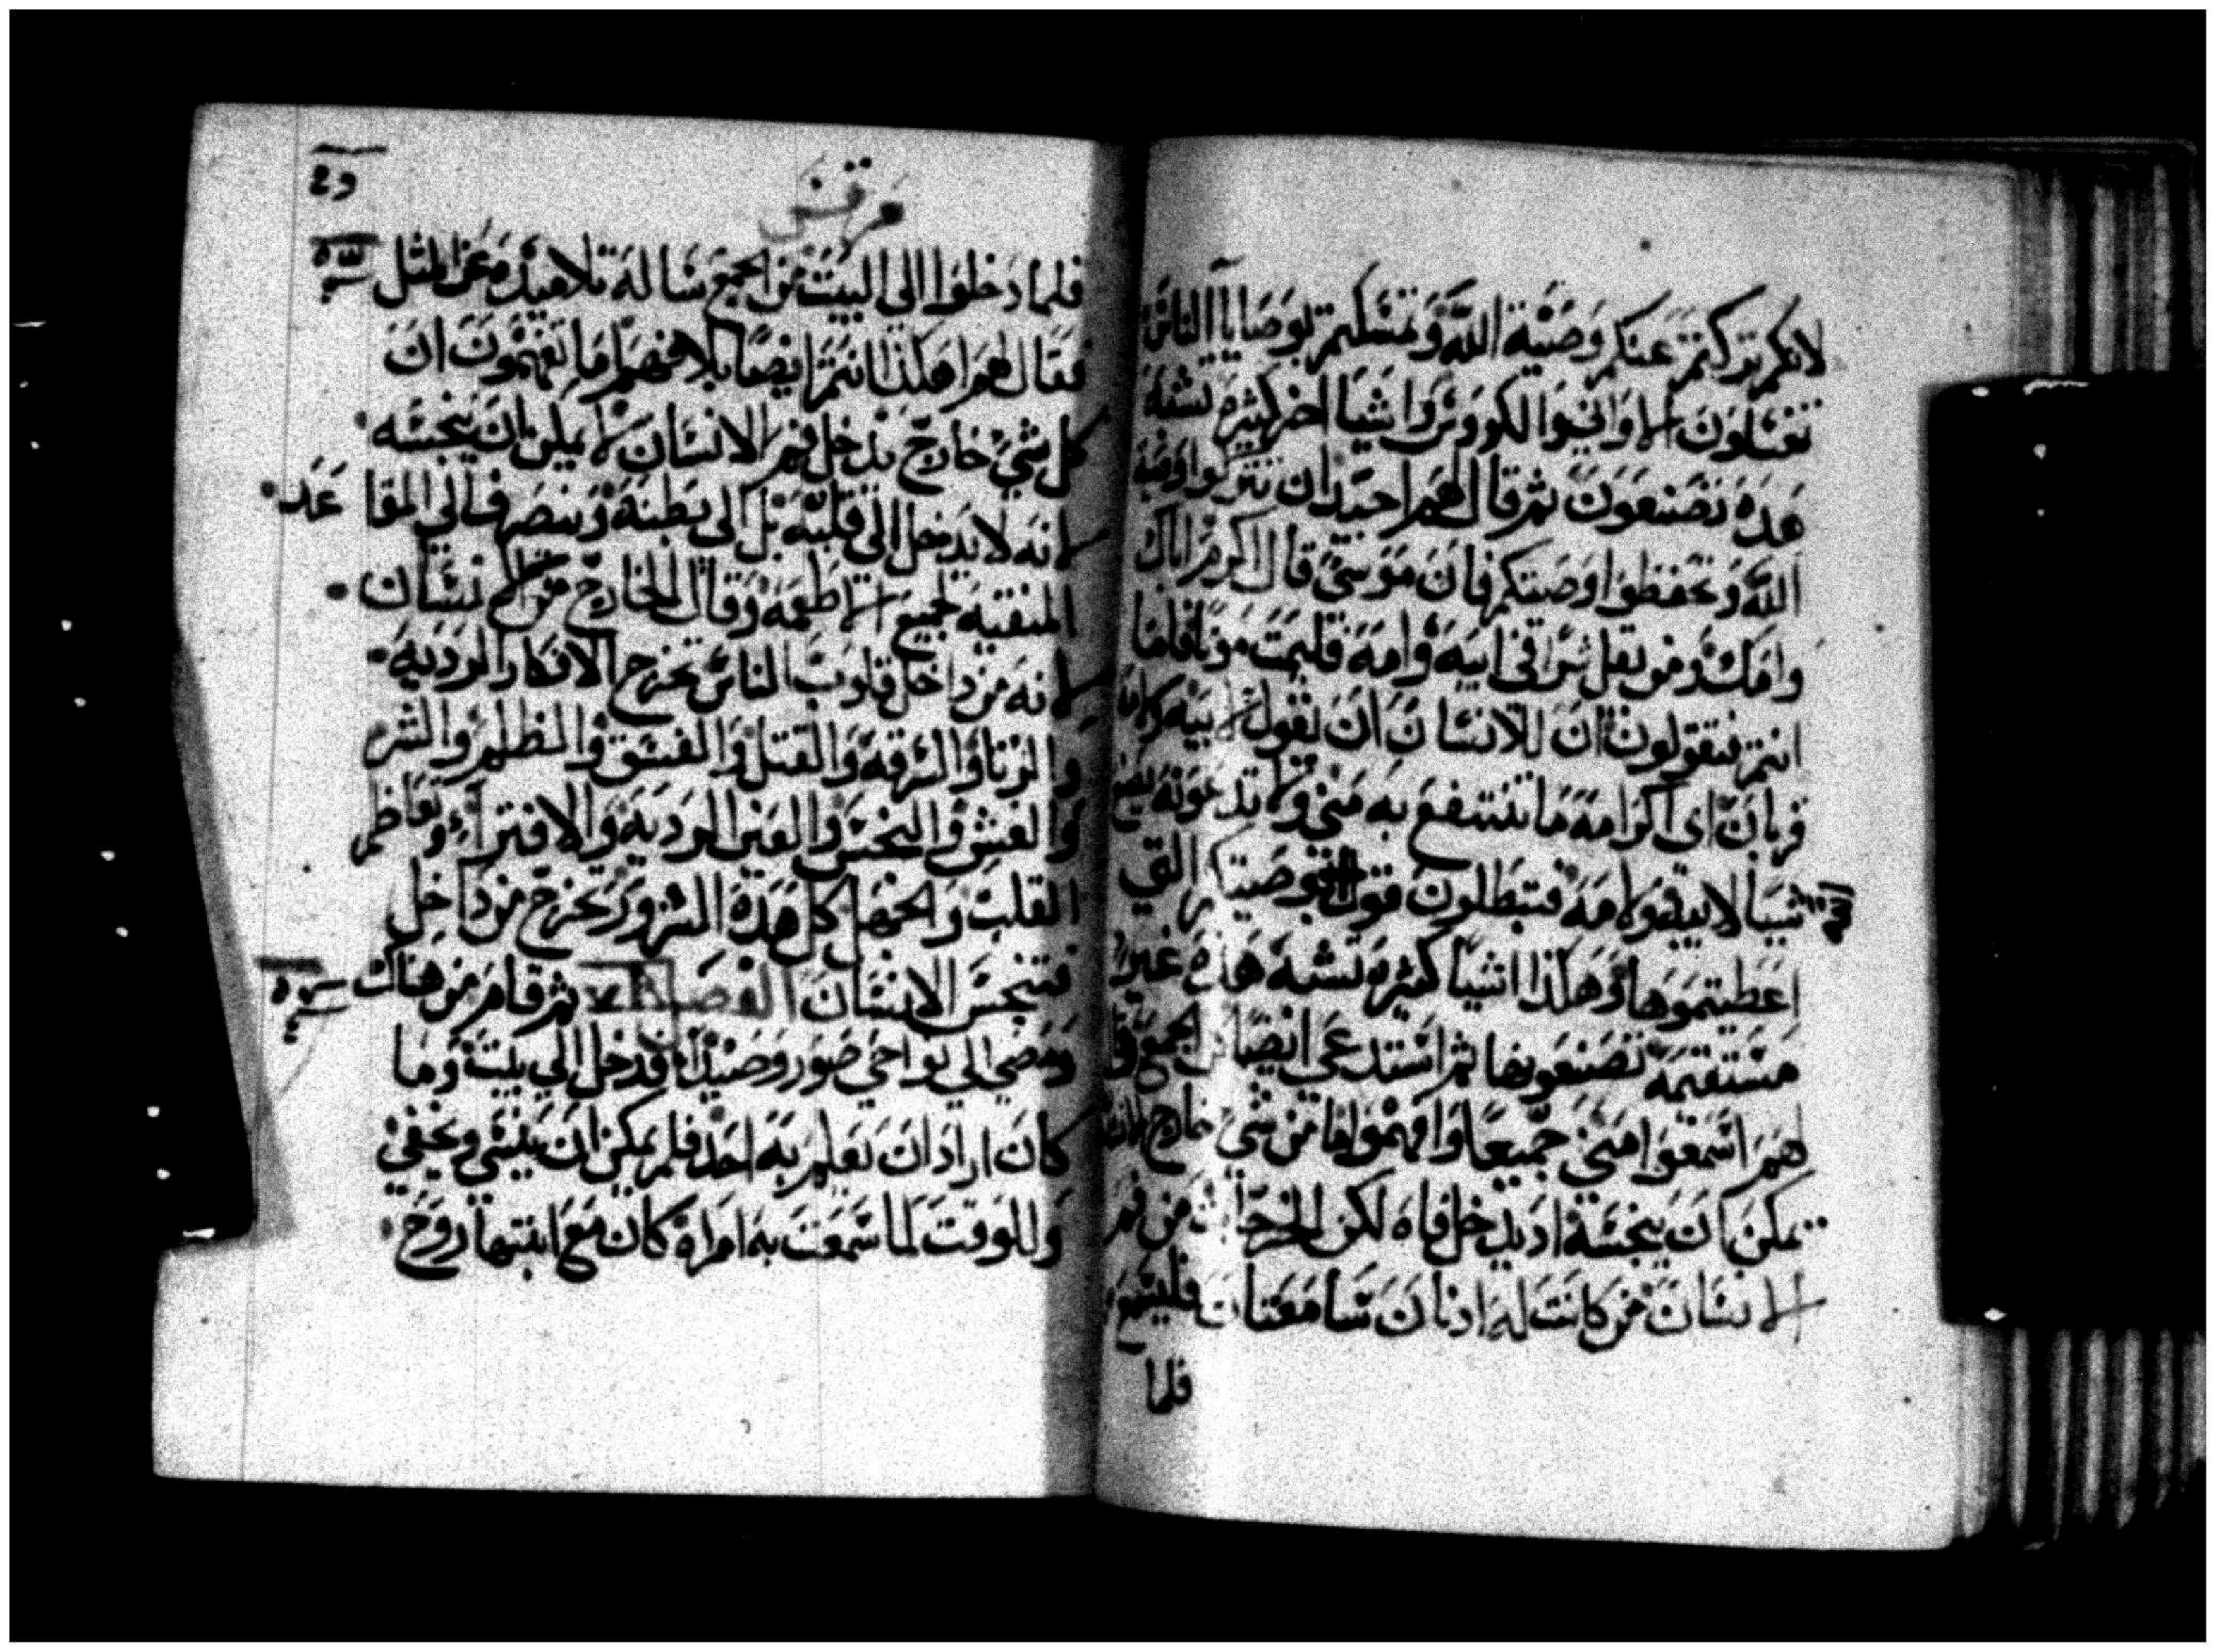 لانكم تركتم عنكم وصية الله وتمسكتم بوصايا الناس
تغسلون الاواني والكووس واشيا اخر كثيره تشبه
هده تصنعون ثم قال لهم احيد ان تتركوا وصية
الله وتحفظوا وصيتكم فان موسى قال اكرم اباك
وامك ومن يقل شرا في ابيه وامه فليمت موتا فاما
انتم فتقولون ان للانسان ان يقول لابيه ولامه
قربان اي اكرامه ما تنتفع به مني ولا تدعونه يصنع
شيا لابيه ولامه فتبطلون قول بوصيتكم التي
اعطيتموها وهكذا اشيا كثيره تشبه هذه غير
مستقيمه تصنعونها ثم استدعى ايضا الجمع وقا
لهم اسمعوا مني جميعا وافهموا ما من شي خارج
يمكن ان ينجسه اد يدخل فاه لكن من فم
الانسان من كانت له ادنان سامعتان فليسمع
فلما
مرقس
فلما دخلوا الى البيت من الجمع ساله تلاميذه عن المثل
فقال لهم اهكذا انتم ايضا بلا فهم اما تفهمون ان
كل شي خارج يدخل فم الانسان لا يمكن ان ينجسه
لانه لا يدخل الى قلبه بل الى بطنه وينصرف الى المقاعد
المنقيه لجميع الاطعمه وقال الخارج من الانسان
لانه من داخل قلوب الناس تخرج الافكار الرديه
والزنا والسرقه والقتل والفسق والظلم والشر
والغش والنجس والعين الرديه والافتراء وتعاظم
القلب والجهل كل هده الشرور تخرج من داخل
فتنجس الانسان ثم قام من هناك
ومضى الى نواحي صور وصيدا فدخل الى بيت وما
كان اراد ان يعلم به احد فلم يمكن ان يختفي
وللوقت لما سمعت به امراه كان مع ابنتها روح